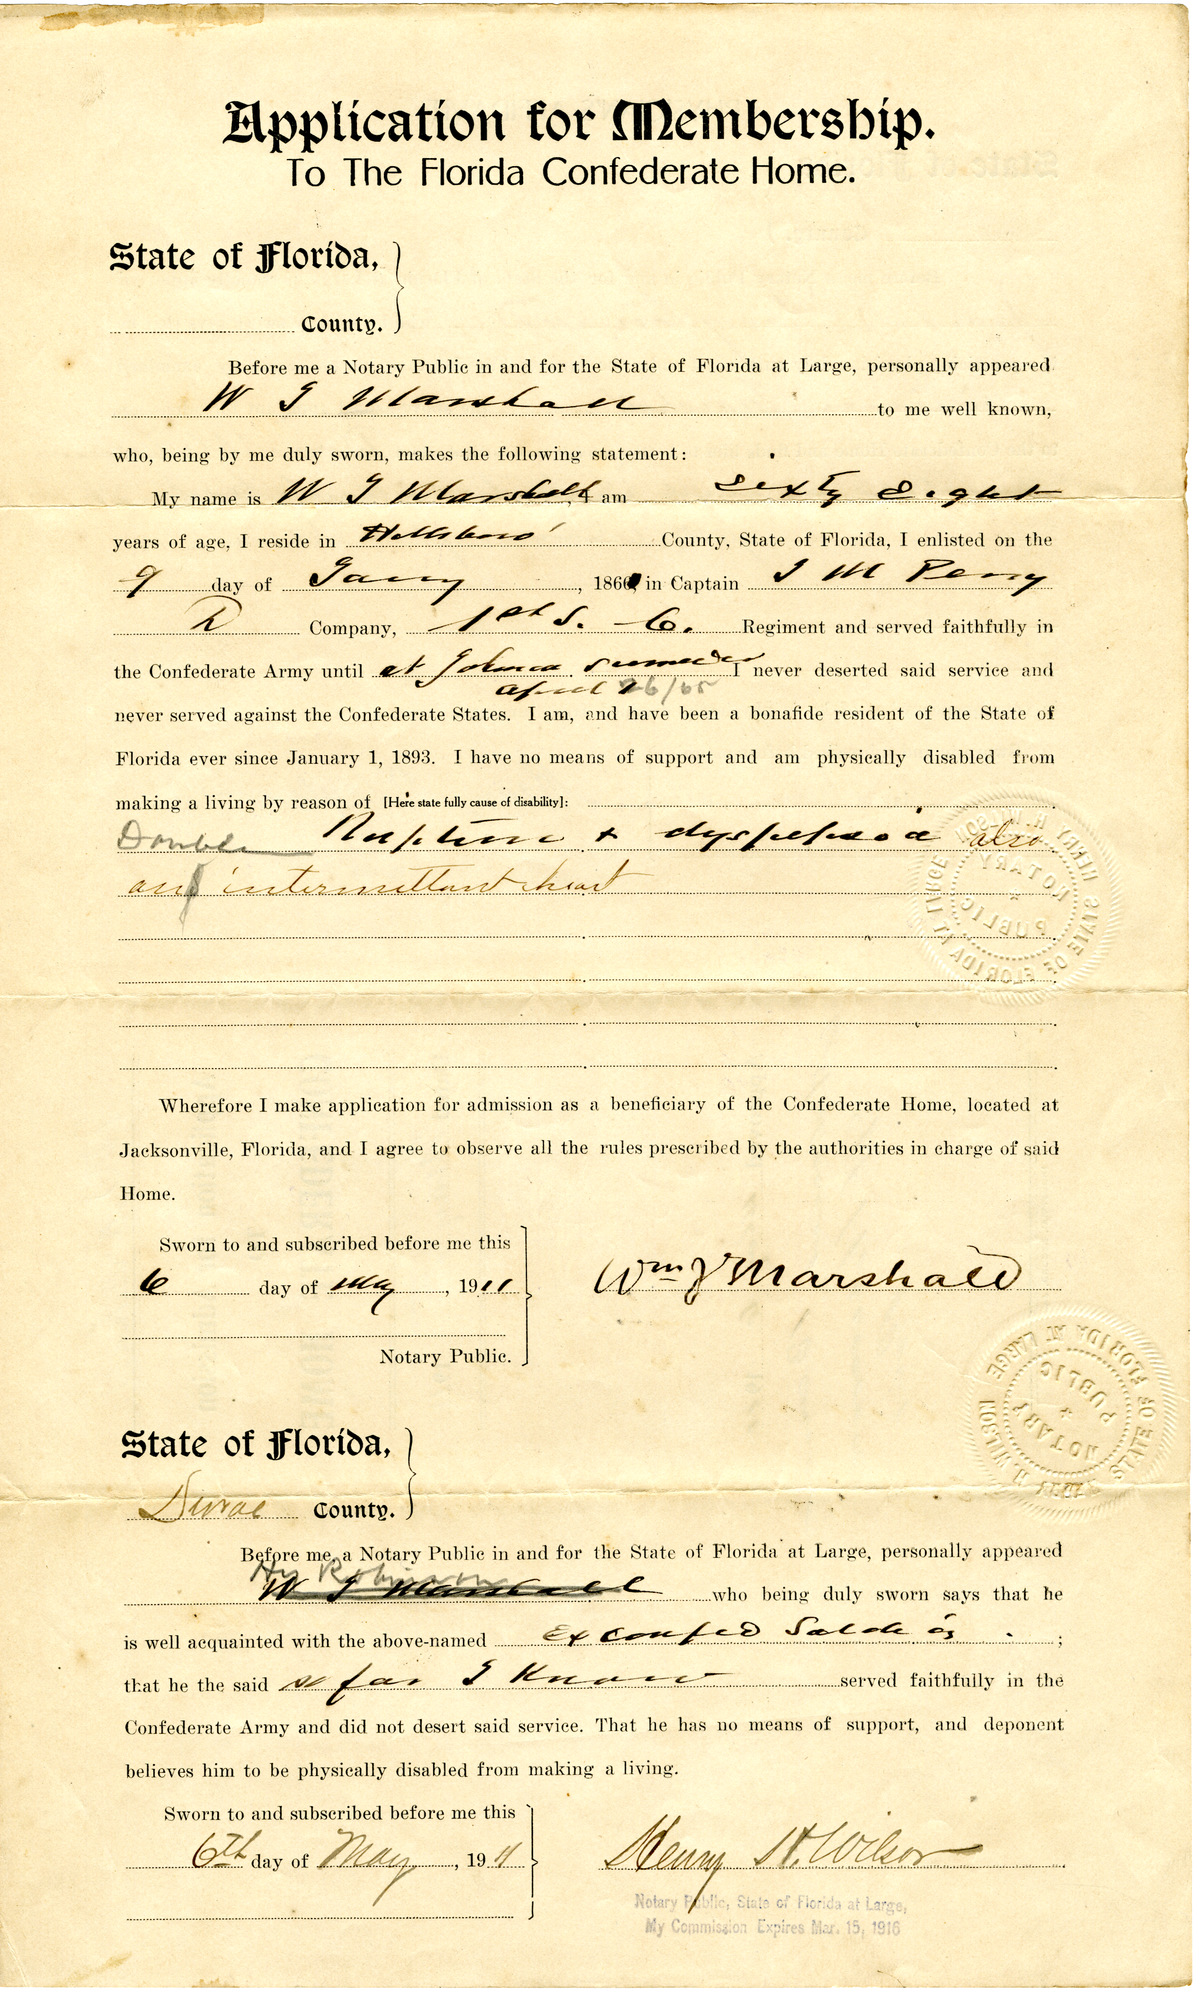 Application for Membership.
To The Florida Confederate Home.
State of Florida,
County.
Before me a Notary Public in and for the State of Florida at Large, personally appeared
W J Marshall to me well known,
who, being by me duly sworn, makes the following statement:
My name is W J Marshall I am Sixty Eight
years of age, I reside in Hillsboro County, State of Florida, I enlisted on the
9 day of Jany, 186 in Captain J M Perry
D Company, 1st S. C. Regiment and served faithfully in
the Confederate Army until at I never deserted said service and
April 26/65
never served against the Confederate States. I am, and have been a bonafide resident of the State of
Florida ever since January 1, 1893. I have no means of support and am physically disabled from
making a living by reason of [Here state fully cause of disability]:
Double Rupture + dyspepsia also
an intermittant heart
Wherefore I make application for admission as a beneficiary of the Confederate Home, located at
Jacksonville, Florida, and I agree to observe all the rules prescribed by the authorities in charge of said
Home.
Sworn to and subscribed before me this
6 day of May, 1911
Wm J Marshall
Notary Public.
HENRY H. WILSON
NOTARY PUBLIC
STATE OF FLORIDA AT LARGE
State of Florida,
Duval County.
Before me, a Notary Public in and for the State of Florida at Large, personally appeared
Hy Robinson
W J Marshall who being duly sworn says that he
is well acquainted with the above-named Ex confed ;
that he the said so far I Know served faithfully in the
Confederate Army and did not desert said service. That he has no means of support, and deponent
believes him to be physically disabled from making a living.
Sworn to and subscribed before me this
6th day of May, 1911
Henry H. Wilson
Notary Public, State of Florida at Large,
My Commission Expires Mar. 15, 1916